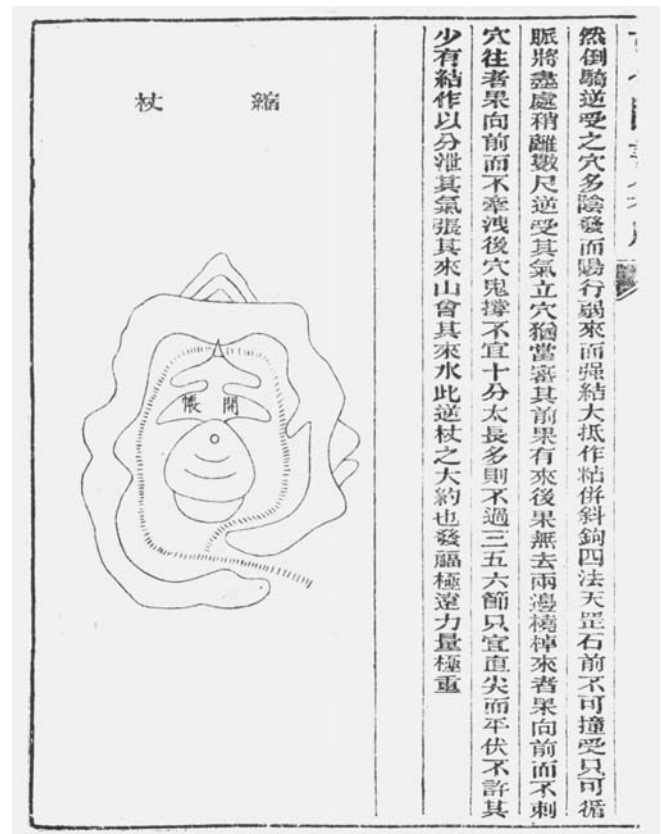 然倒騎逆受之穴多陰發而陽行弱來而强結大抵作粘倂斜鉤四法天罡石前不可撞受只可循
脈將盡處稍離數尺逆受其氣立穴猶當審其前果有來後果無去兩邊橈棹來者果向前而不刺
穴往者果向前而不牽洩後穴鬼撐不宜十分太長多則不過三五六節只宜直尖而平伏不許其
少有結作以分泄其氣張其來山會其來水此逆杖之大約也發福極遠力量極重
縮杖
開帳